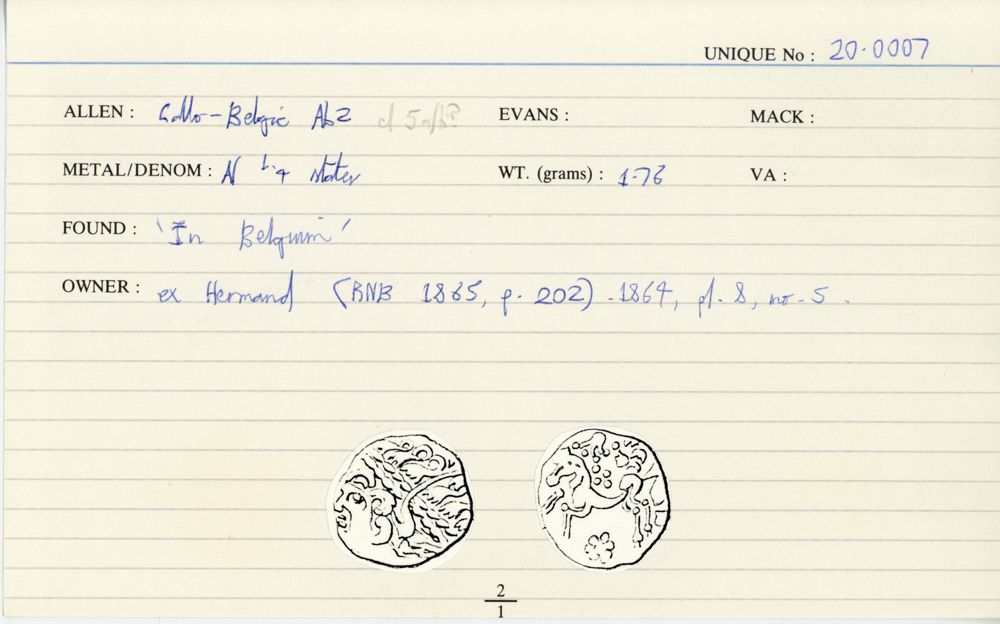 UNIQUE No : 20.0007
ALLEN : Gallo-Belgic Ab2 EVANS : MACK :
METAL/DENOM : N 1/4 stater WT. (grams) : 1.76 VA :
FOUND : 'In Belgium'
OWNER : ex Hermand (RNB 1865, p. 202). 1864, pl. 8, no. 5.
2
1